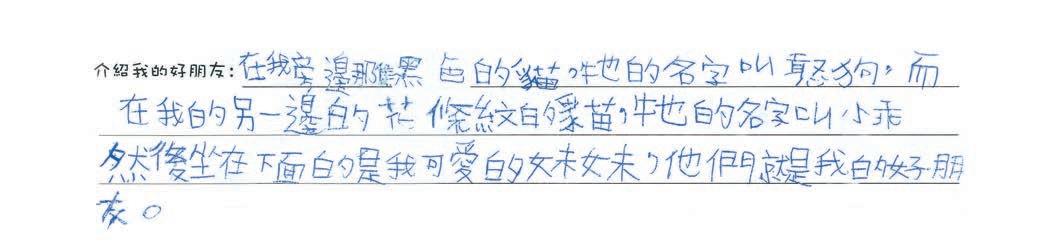 介紹我的好朋友：在我旁邊那隻黑色的貓，牠的名字叫黑狗，而
在我的另一邊的花條紋的貓，牠的名字叫小乖
然後坐在下面的是我可愛的妹妹，他們就是我的好朋
友。